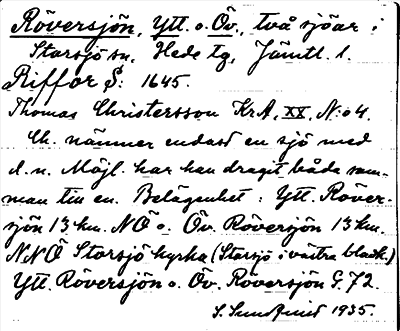 Röversjön, Ytt. o. Öv., två sjöar i
Storsjö sn, Hede tg, Jämtl. l.
Riffor S: 1645.
Thomas Christersson KrA, XX, N:o 4.
Ch. nämner endast en sjö med
d. n. Möjl. har han dragit båda sam-
man till en. Belägenhet: Ytt. Röver-
sjön 13 km. NÖ o. Öv. Röversjön 13 km.
NNÖ Storsjö kyrka (Storsjö i västra black.)
Ytt. Röversjön o. Öv. Röversjön G. 72.
S. 1935.